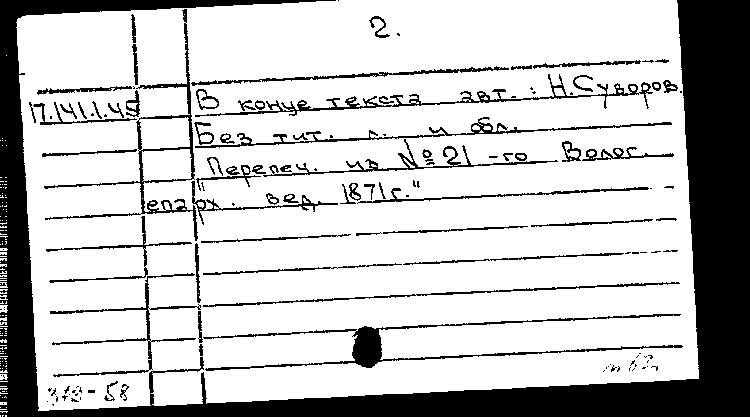 2.
17.141.1.45 В конце текста авт.: Н.Суворов.
Без тит. л. и обл.
"Перепеч. из №21-го Волог.
епарх. вед. 1871г."
312-58